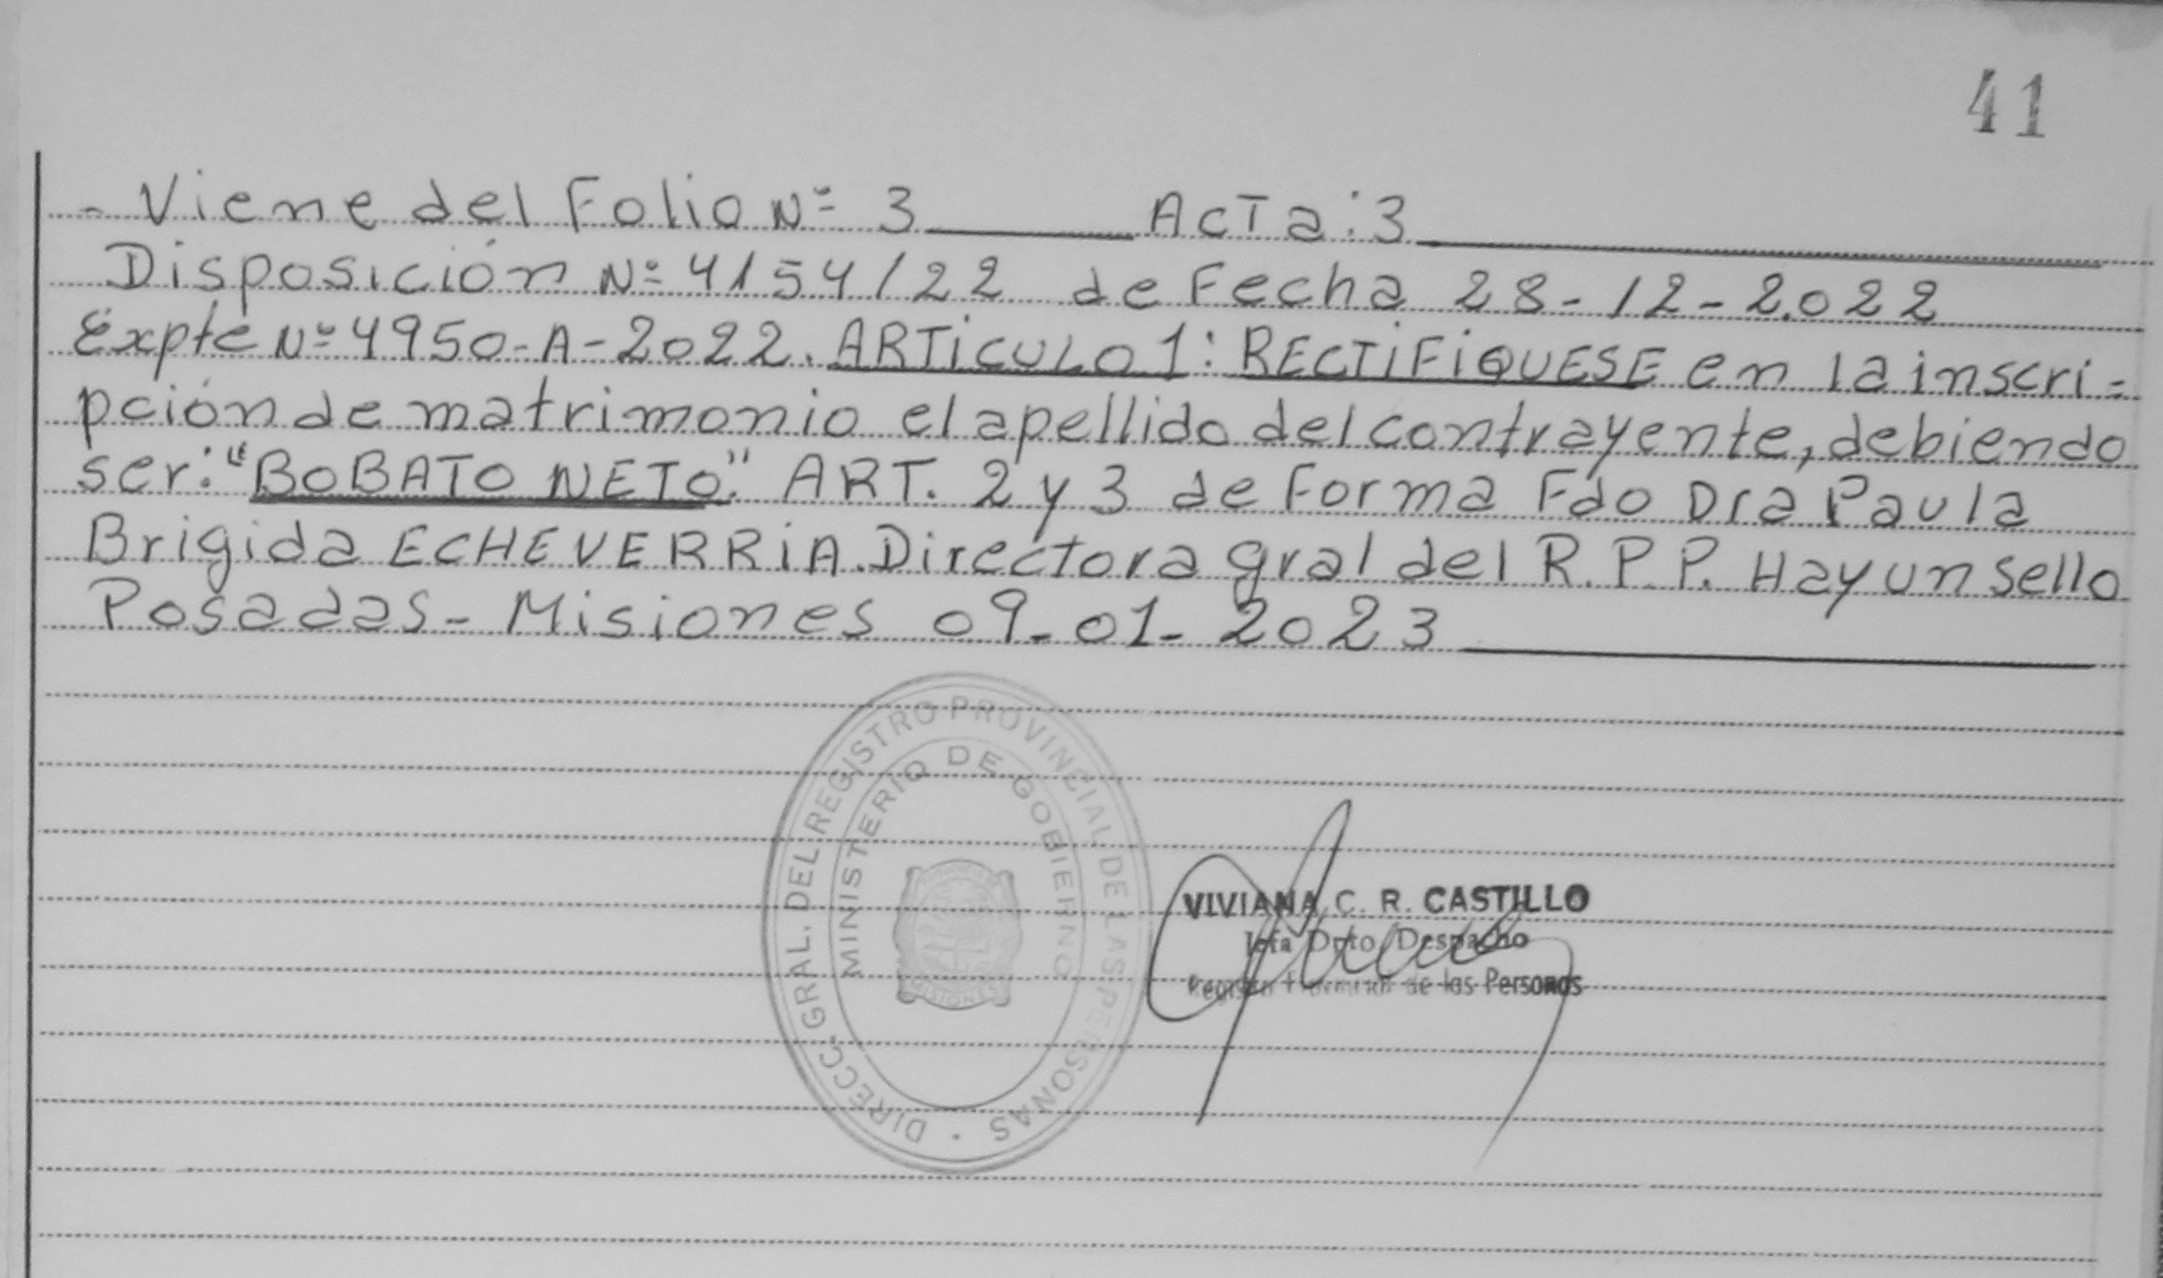 41
- Viene del Folio Nº 3 ActTa: 3
Disposición Nº 4154/22 de Fecha 28-12-2.022
Expte Nº 4950-A-2022. ARTiCULO 1: RECTiFiQUESE en la inscri-
pción de matrimonio el apellido del contrayente, debiendo
ser: "BOBATO NETO". ART. 2 y 3 de Forma Fdo Dra Paula
Brigida ECHEVERRiA. Directora gral del R.P.P. Hay un sello
Posadas - Misiones 09-01-2023
DIRECC. GRAL. DEL REGISTRO PROVINCIAL DE LAS PERSONAS
MINISTERIO DE GOBIERNO
MISIONES
VIVIANA C. R. CASTILLO
Jefa Dpto Despacho
Registro de las Personas